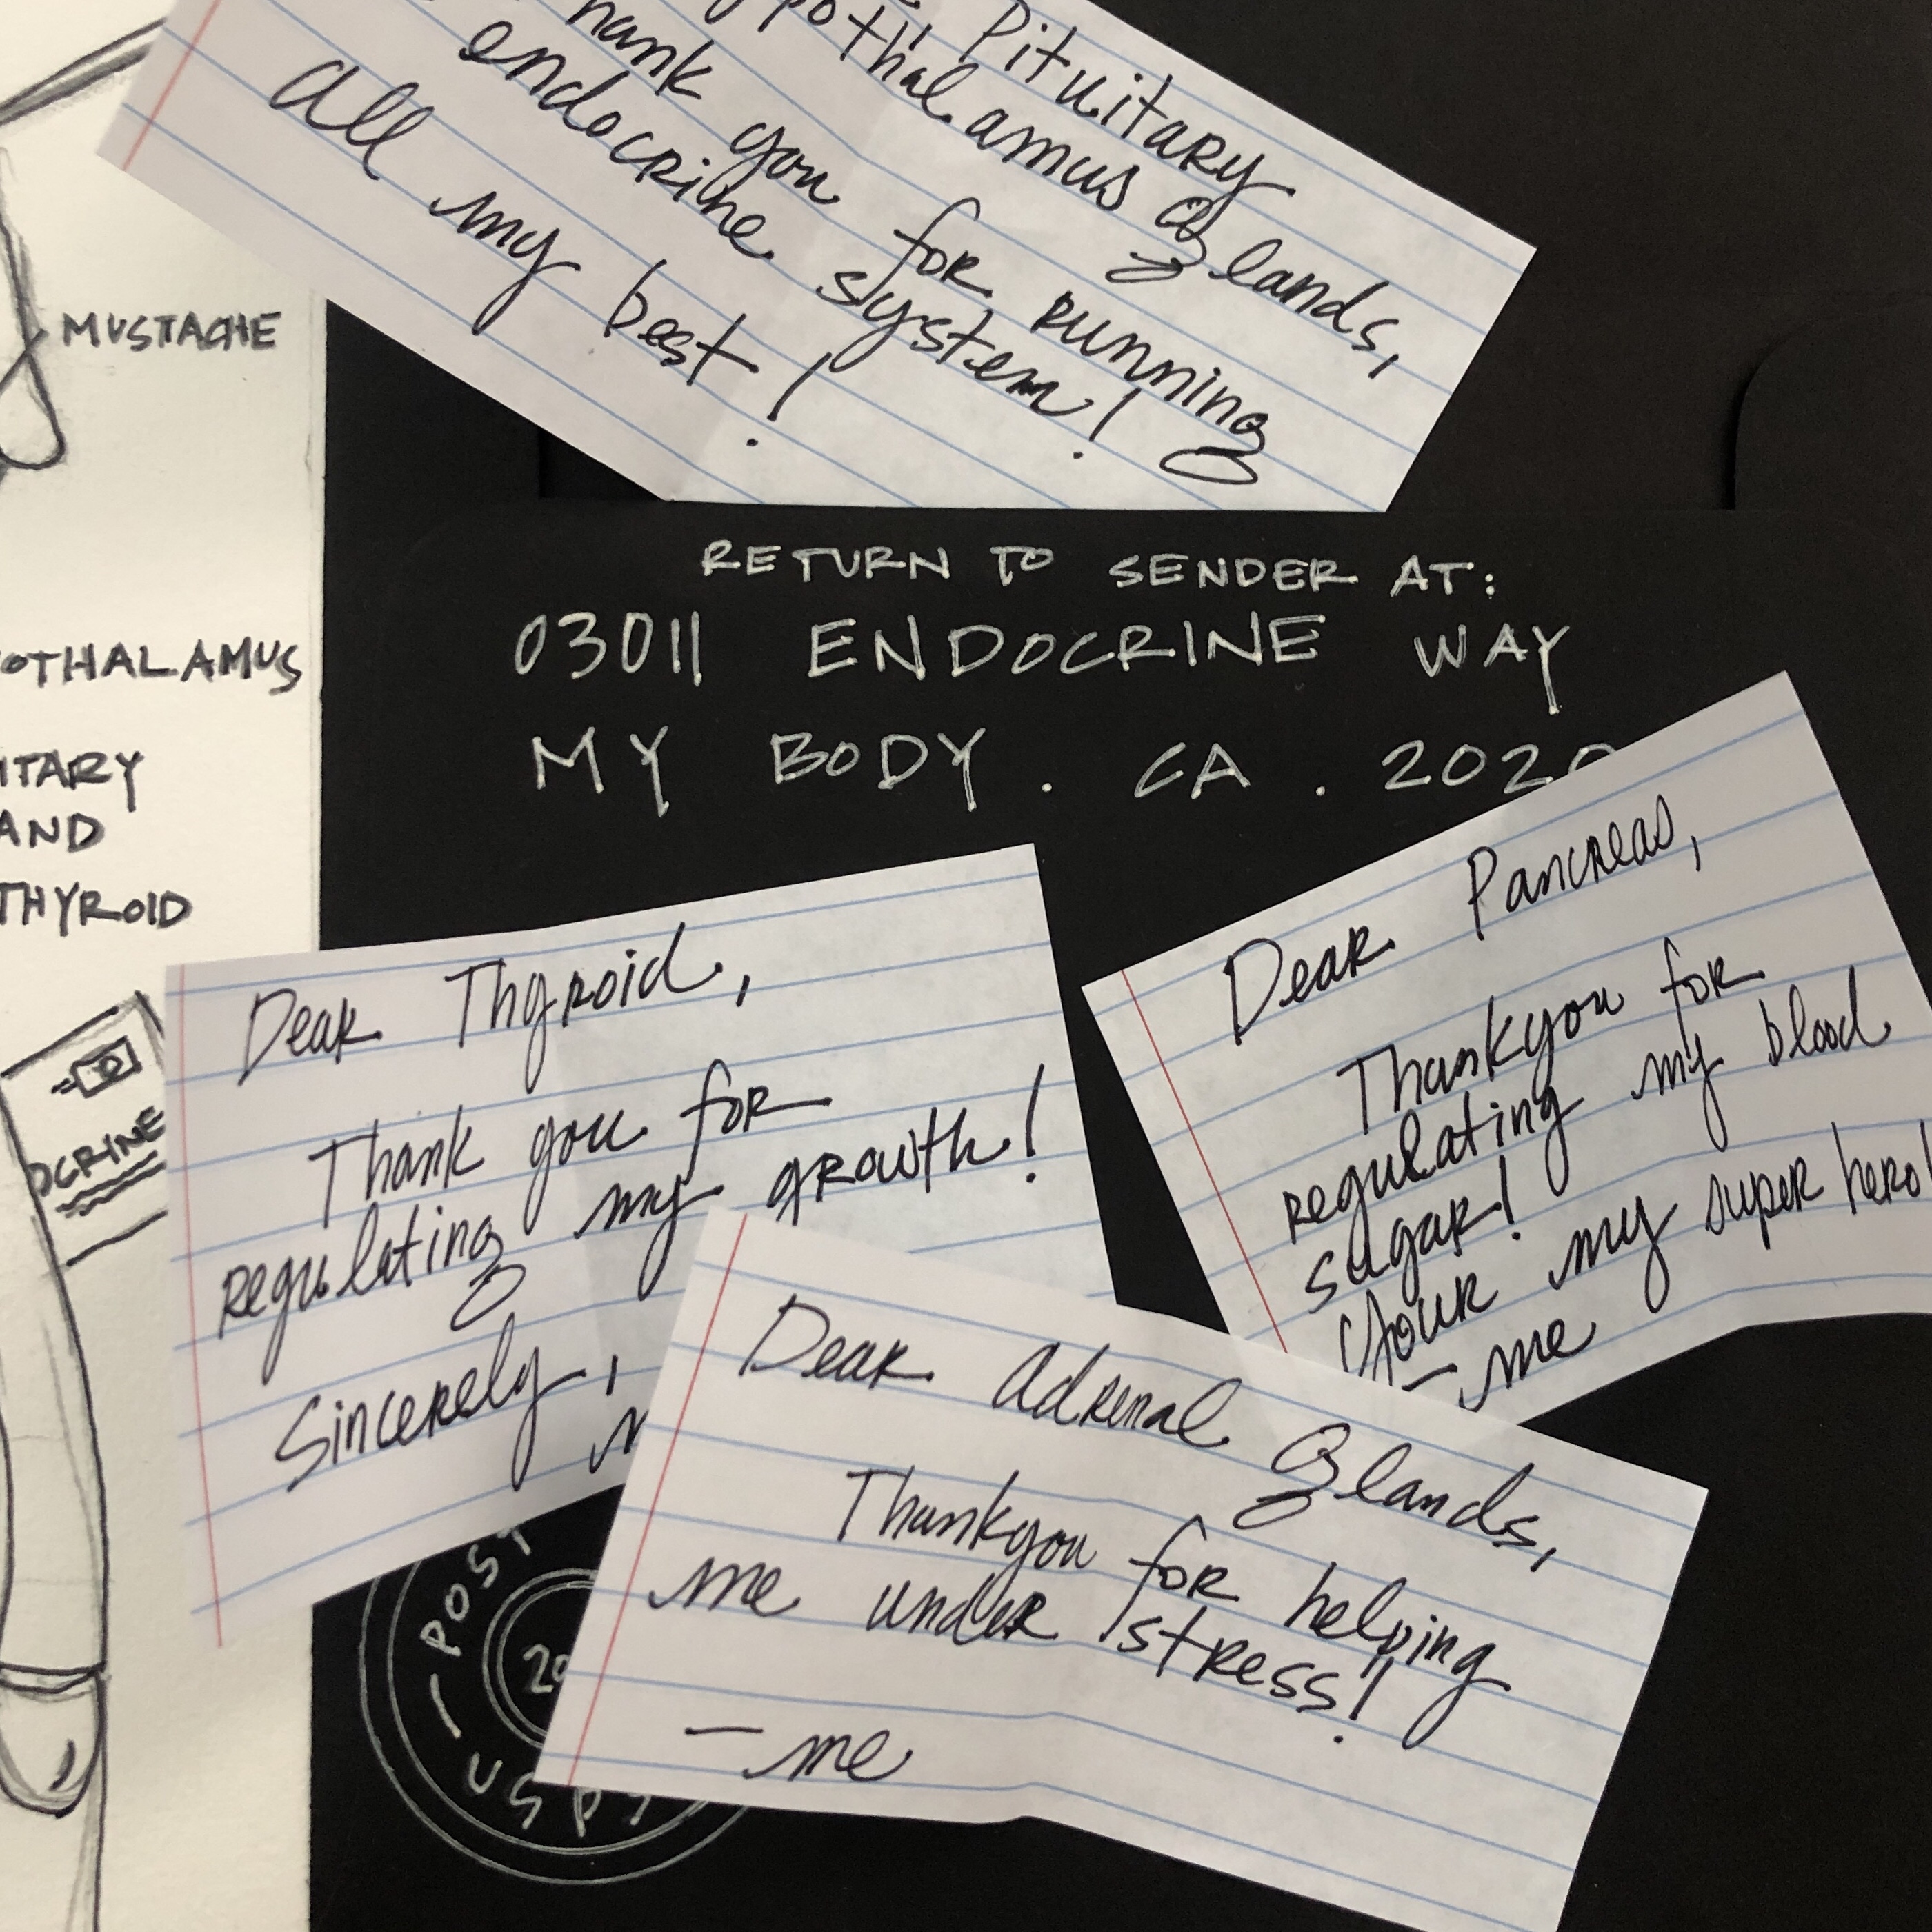 Pituitary
pothalamus glands,
hank you for running
endocrine system!
All my best!
MUSTACHE
RETURN TO SENDER AT:
03011 ENDOCRINE WAY
MY BODY . CA . 2020
OTHALAMUS
ITARY
AND
THYROID
Dear Pancreas,
Thankyou for
regulating my blood
sugar!
Your my super hero!
- me
Dear Thyroid,
Thank you for
regulating my growth!
Sincerely,
OCRINE
Dear Adrenal Glands,
Thankyou for helping
me under stress!
- me
POST
20
USPS